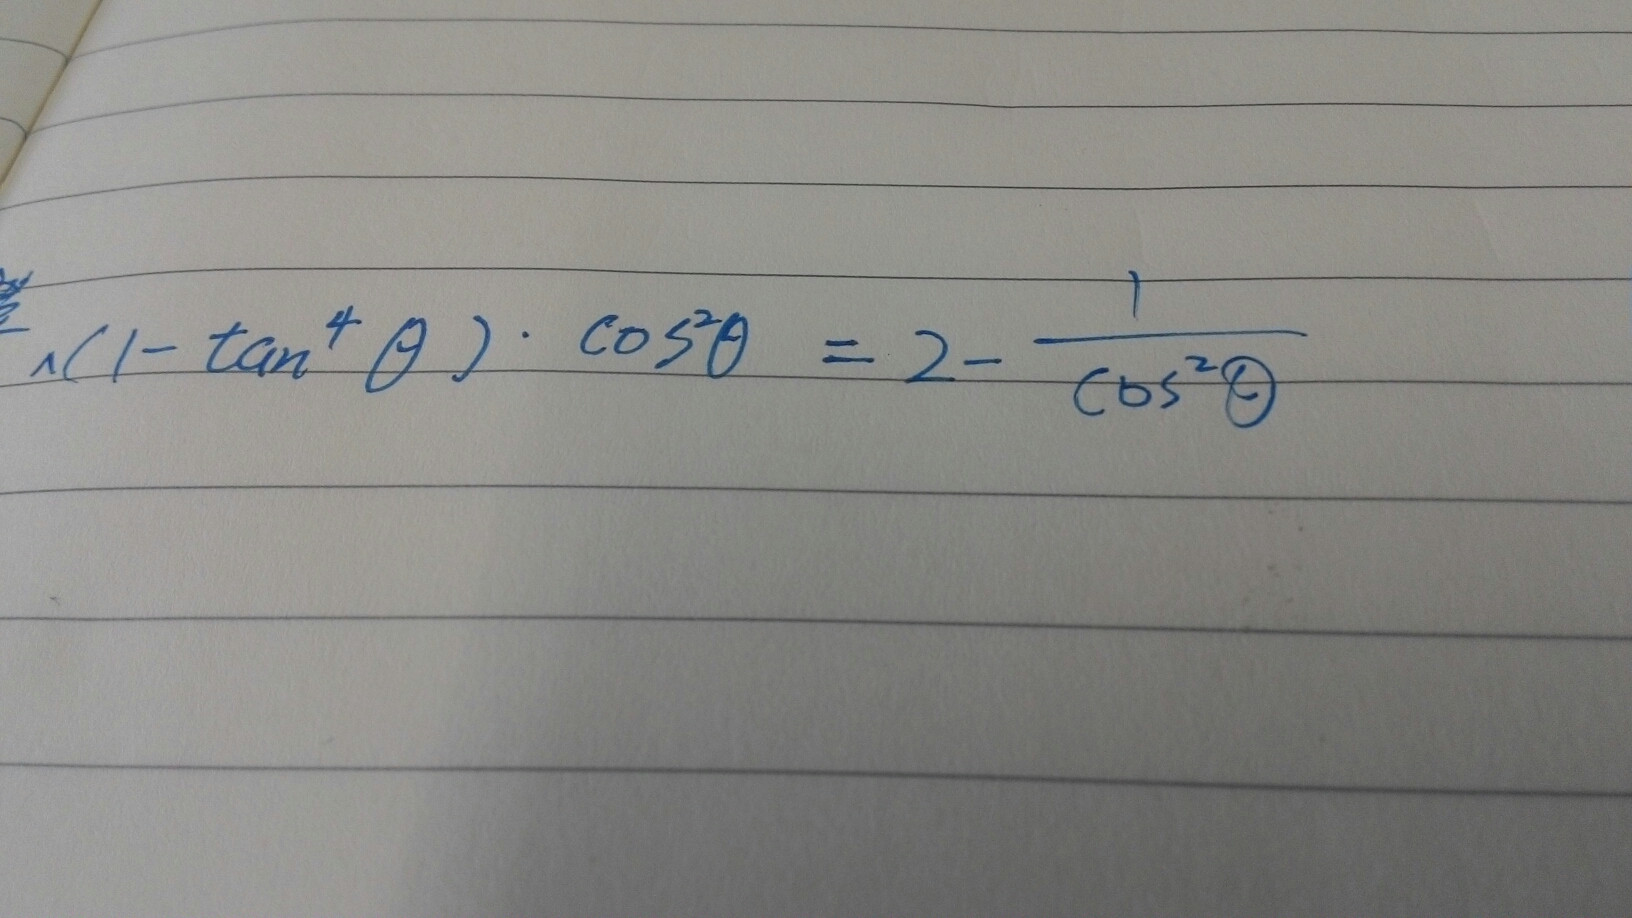 (1-tan⁴θ)·cos²θ = 2-1/cos²θ